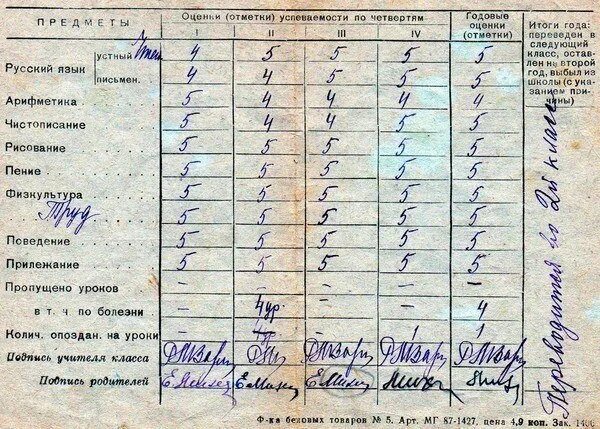 ПРЕДМЕТЫ Оценки (отметки) успеваемости по четвертям Годовые оценки (отметки)
I II III IV
Итоги года: переведен в следующий класс, оставлен на второй год, выбыл из школы (с указанием причины)
Русский язык устный 4 5 5 5 5
письмен. 4 4 5 5 5
Арифметика 5 4 4 4 4
Чистописание 5 4 4 5 5
Рисование 5 5 5 5 5
Пение 5 5 5 5 5
Физкультура 5 5 5 5 5
Труд 5 5 5 5 5
Поведение 5 5 5 5 5
Прилежание 5 5 5 5 5
Пропущено уроков – – – – –
в т. ч по болезни – 4 ур. – – 4
Колич. опоздан. на уроки – – 1 1
Подпись учителя класса
Подпись родителей
Переводится во 2й класс
Ф-ка беловых товаров № 5. Арт. МГ 87-1427, цена 4,9 коп. Зак.